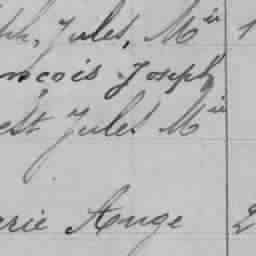 ph, Jules, Mie 1
nçois Joseph
est Jules Mie
erie Ange 2